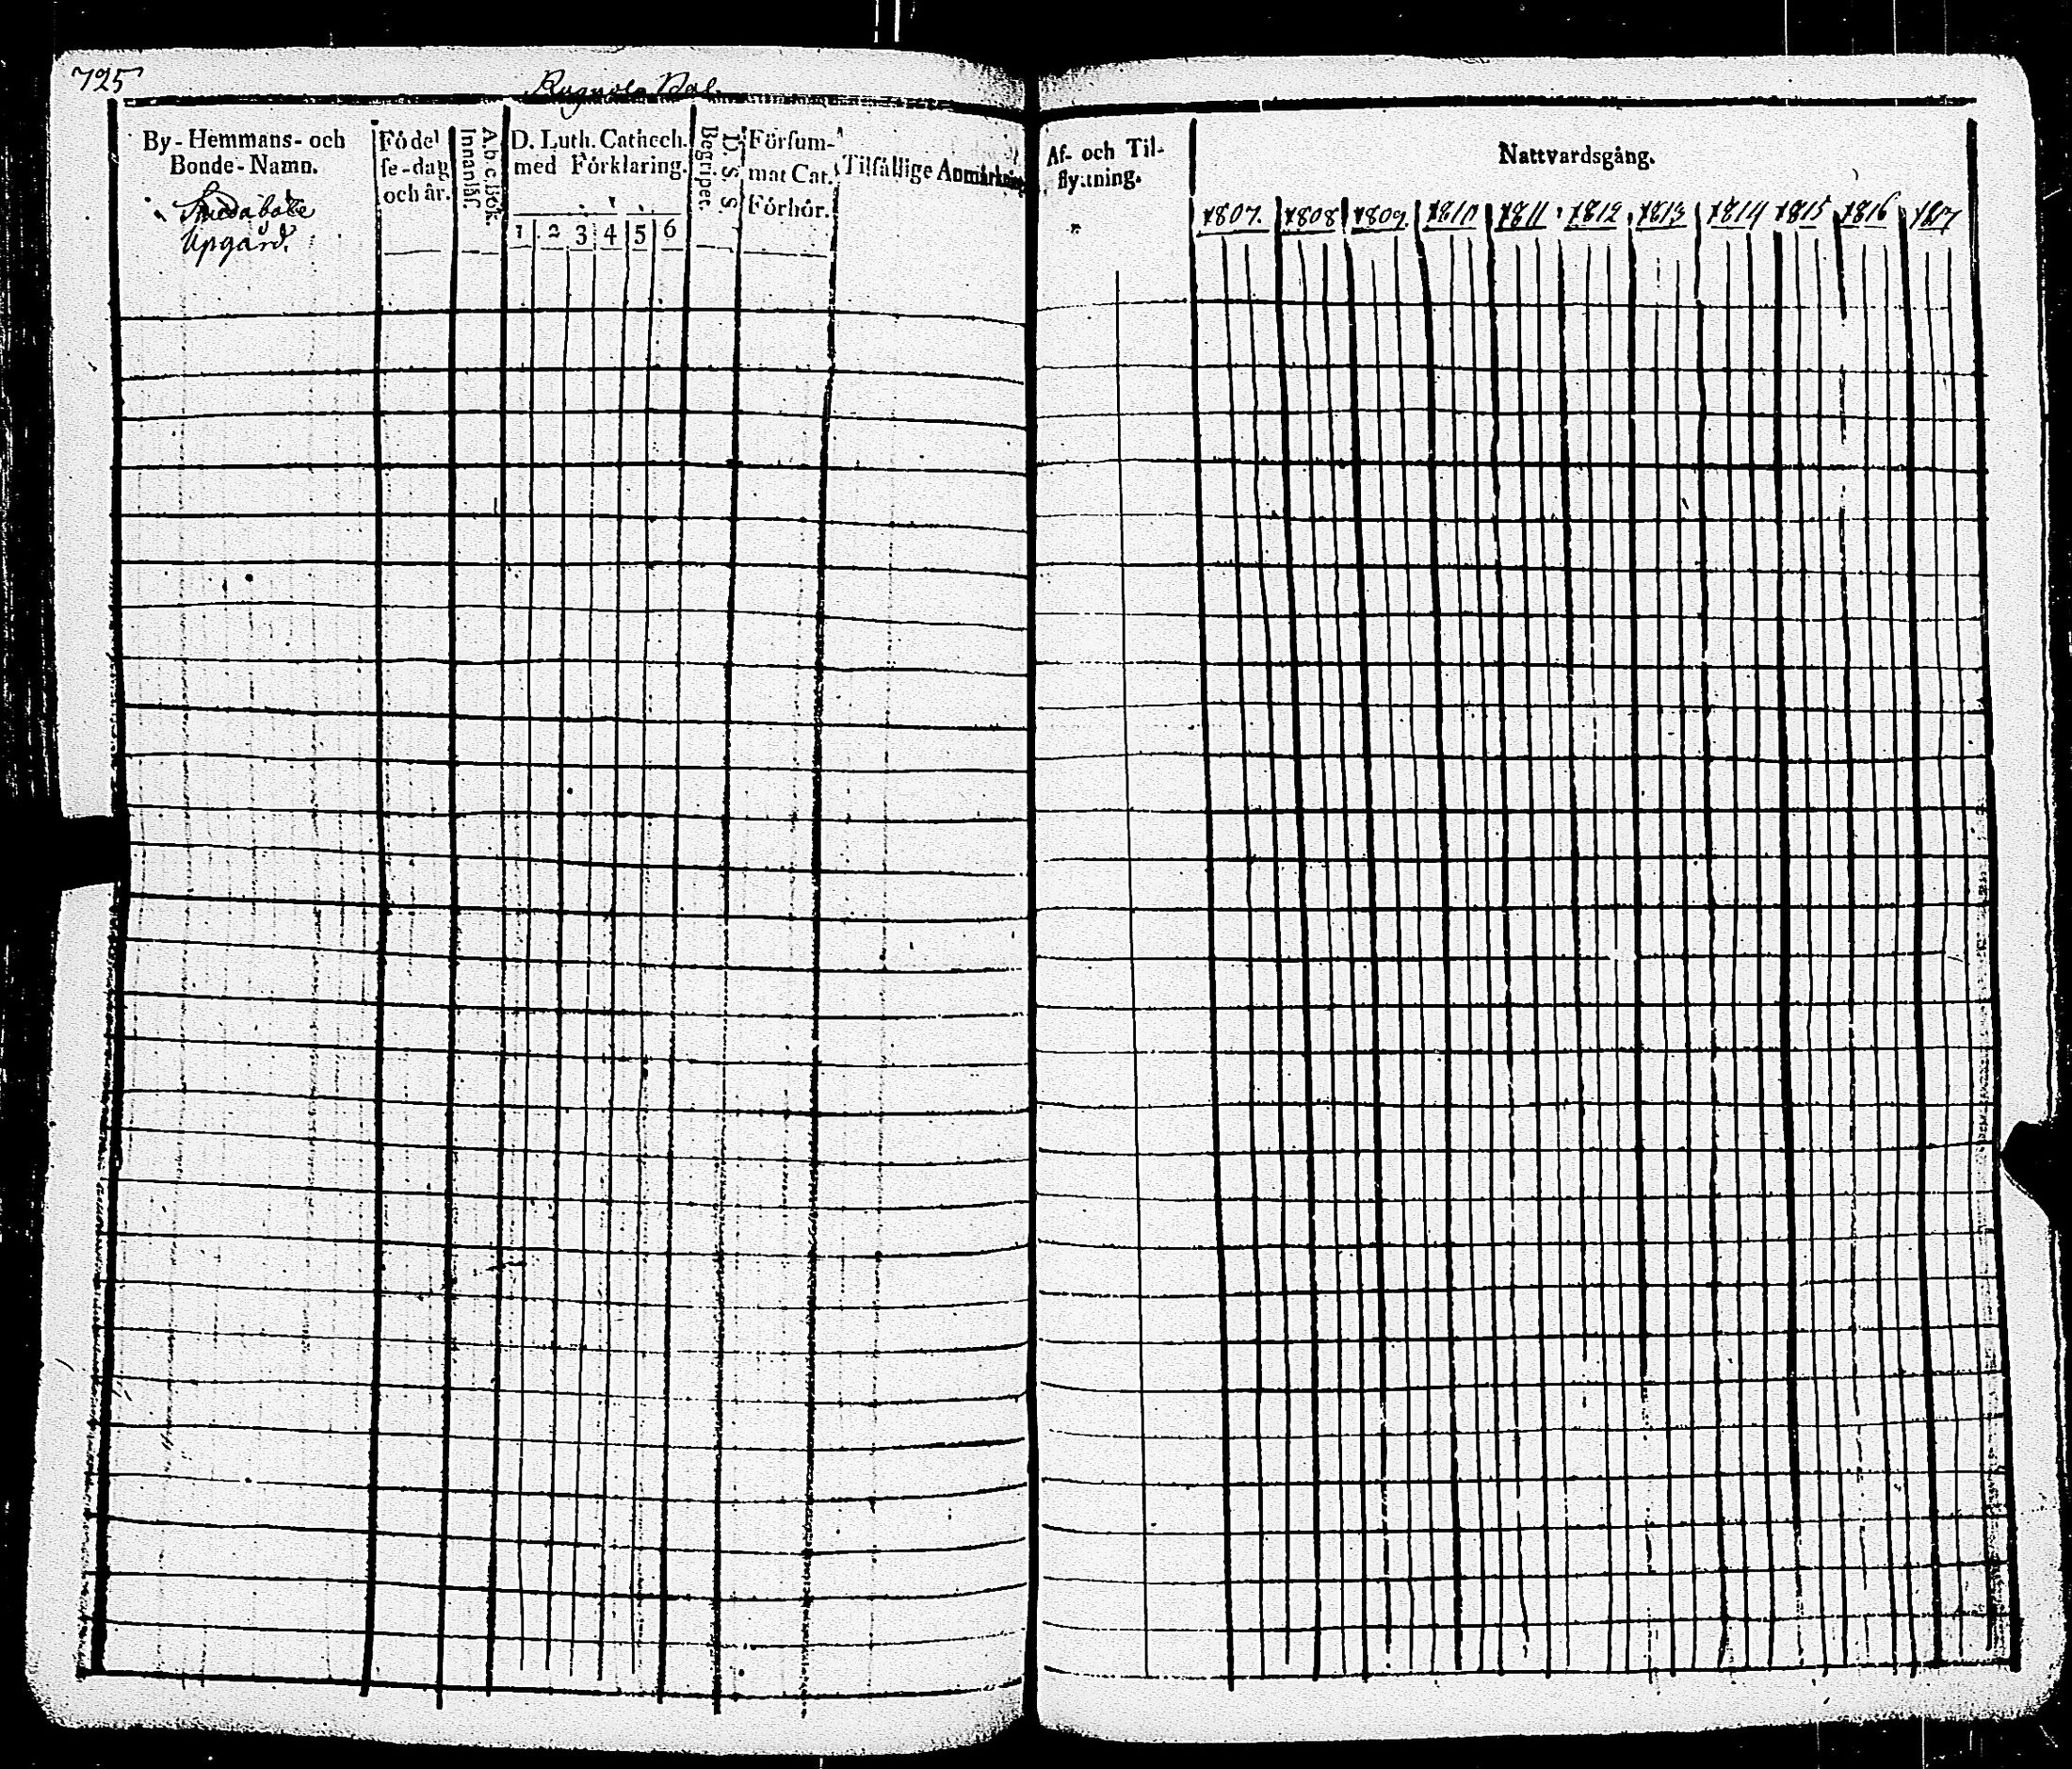 725
By-Hemmans- och
Bonde-Namn.
Smedaböle
Upgård.
Födel
se-dag
och år.
A.b.c.Bok.
Innanläs.
D. Luth. Cathech.
med Förklaring.
1 2 3 4 5 6
D. S. S.
Begriper.
Försum-
mat Cat.
Förhör.
Tilfällige Anmärkning
Af- och Til-
flyttning.
Nattvardsgång.
1807. 1808 1809. 1810 1811 1812 1813 1814 1815 1816 1817